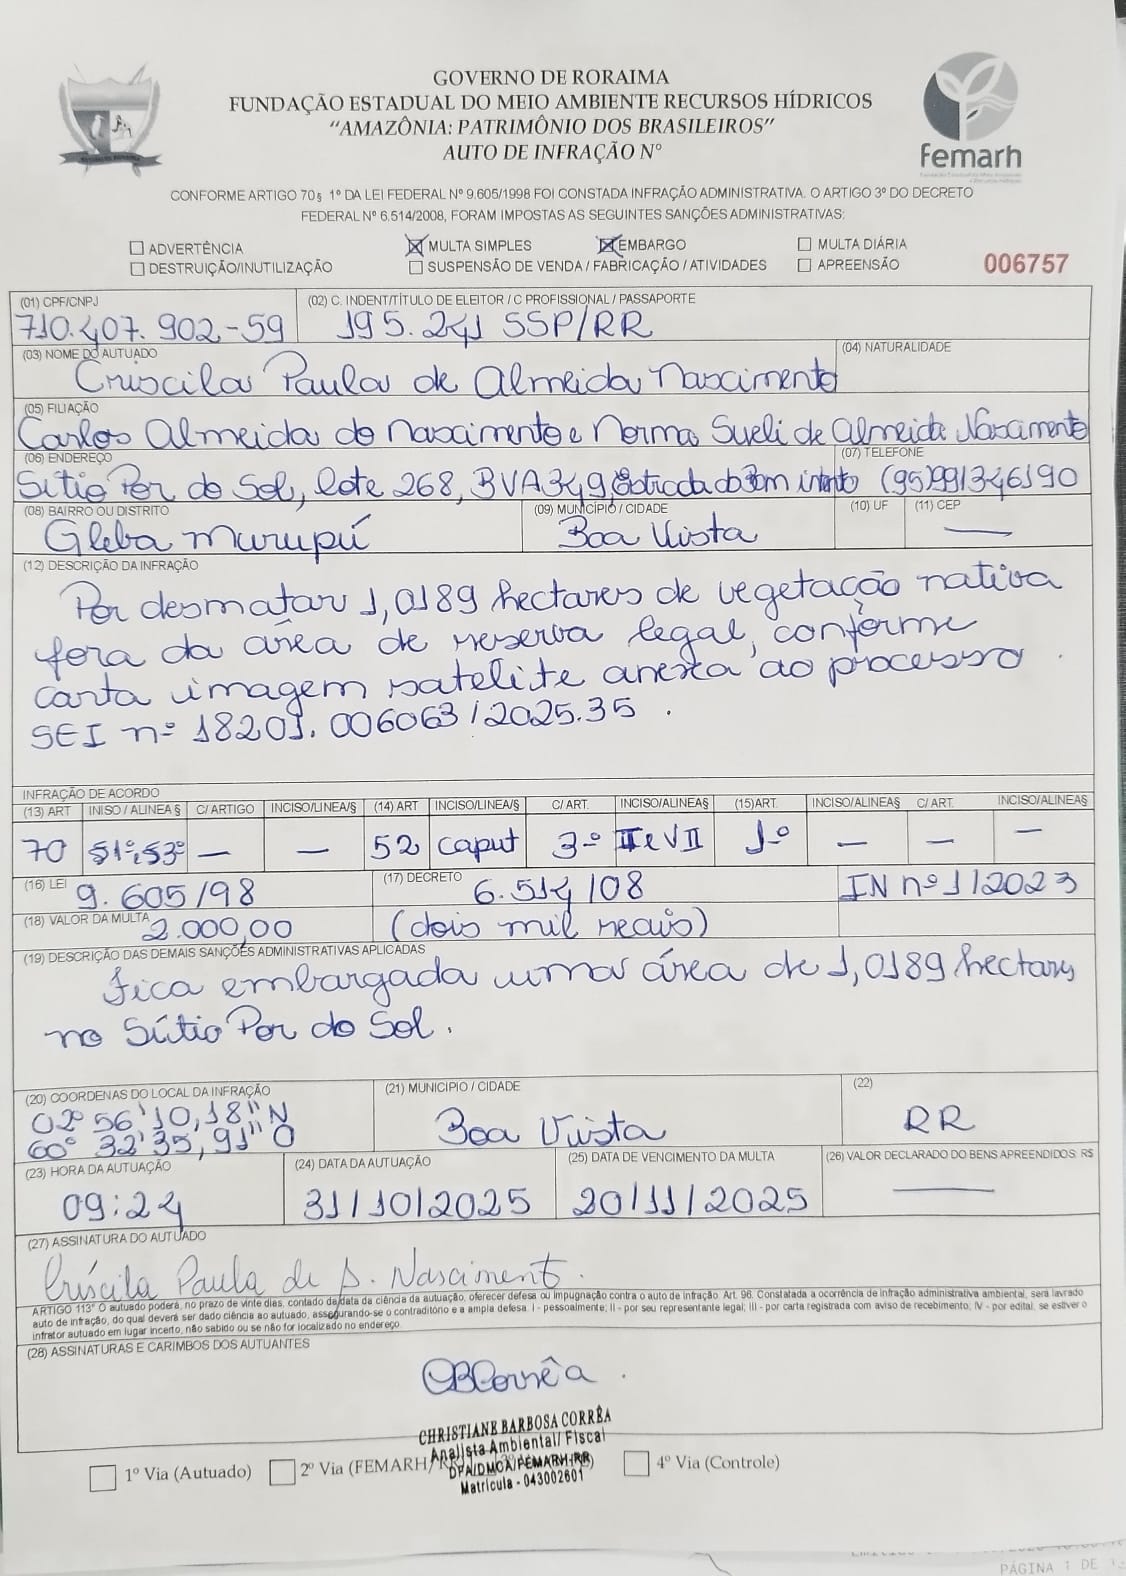 GOVERNO DE RORAIMA
FUNDAÇÃO ESTADUAL DO MEIO AMBIENTE RECURSOS HÍDRICOS
"AMAZÔNIA: PATRIMÔNIO DOS BRASILEIROS"
AUTO DE INFRAÇÃO Nº
femarh
CONFORME ARTIGO 70 § 1º DA LEI FEDERAL Nº 9.605/1998 FOI CONSTADA INFRAÇÃO ADMINISTRATIVA. O ARTIGO 3º DO DECRETO
FEDERAL Nº 6.514/2008, FORAM IMPOSTAS AS SEGUINTES SANÇÕES ADMINISTRATIVAS:
ADVERTÊNCIA MULTA SIMPLES EMBARGO MULTA DIÁRIA
DESTRUIÇÃO/INUTILIZAÇÃO SUSPENSÃO DE VENDA / FABRICAÇÃO / ATIVIDADES APREENSÃO 006757
(01) CPF/CNPJ (02) C. INDENT/TÍTULO DE ELEITOR / C PROFISSIONAL / PASSAPORTE
710.407.902-59 195.241 SSP/RR
(03) NOME DO AUTUADO (04) NATURALIDADE
Criscila Paula de Almeida Nascimento
(05) FILIAÇÃO
Carlos Almeida do Nascimento e Norma Sueli de Almeida Nascimento
(06) ENDEREÇO (07) TELEFONE
Sítio Por do Sol, lote 268, BVA349, Estrada do Bom intento (95)991346190
(08) BAIRRO OU DISTRITO (09) MUNICÍPIO / CIDADE (10) UF (11) CEP
Gleba Murupú Boa Vista —
(12) DESCRIÇÃO DA INFRAÇÃO
Por desmatar 1,0189 hectares de vegetação nativa
fora da área de reserva legal, conforme
carta imagem satelite anexa ao processo
SEI nº 18201.006063/2025.35 .
INFRAÇÃO DE ACORDO
(13) ART INISO / ALINEA § C/ ARTIGO INCISO/LINEA/§ (14) ART INCISO/LINEA/§ C/ ART. INCISO/ALINEA§ (15)ART. INCISO/ALINEA§ C/ ART. INCISO/ALINEA§
70 §1º,§3º — — 52 caput 3º II e VII 1º — — —
(16) LEI 9.605/98 (17) DECRETO 6.514/08 IN nº 1/2023
(18) VALOR DA MULTA 2.000,00 (dois mil reais)
(19) DESCRIÇÃO DAS DEMAIS SANÇÕES ADMINISTRATIVAS APLICADAS
Fica embargada uma área de 1,0189 hectares
no Sítio Por do Sol.
(20) COORDENAS DO LOCAL DA INFRAÇÃO (21) MUNICIPIO / CIDADE (22)
02º 56'10,18" N
60º 32'35,91" O Boa Vista RR
(23) HORA DA AUTUAÇÃO (24) DATA DA AUTUAÇÃO (25) DATA DE VENCIMENTO DA MULTA (26) VALOR DECLARADO DO BENS APREENDIDOS: R$
09:24 31/10/2025 20/11/2025 —
(27) ASSINATURA DO AUTUADO
Críscila Paula de A. Nasciment.
ARTIGO 113º O autuado poderá, no prazo de vinte dias, contado da data da ciência da autuação, oferecer defesa ou impugnação contra o auto de infração. Art. 96. Constatada a ocorrência de infração administrativa ambiental, será lavrado
auto de infração, do qual deverá ser dado ciência ao autuado, assegurando-se o contraditório e a ampla defesa. I - pessoalmente; II - por seu representante legal; III - por carta registrada com aviso de recebimento; IV - por edital, se estiver o
infrator autuado em lugar incerto, não sabido ou se não for localizado no endereço.
(28) ASSINATURAS E CARIMBOS DOS AUTUANTES
CBCorrêa .
CHRISTIANE BARBOSA CORRÊA
Analista Ambiental/ Fiscal
DPA/DMCA/FEMARH-RR
Matrícula - 043002601
1º Via (Autuado) 2º Via (FEMARH/ 4º Via (Controle)
PÁGINA 1 DE